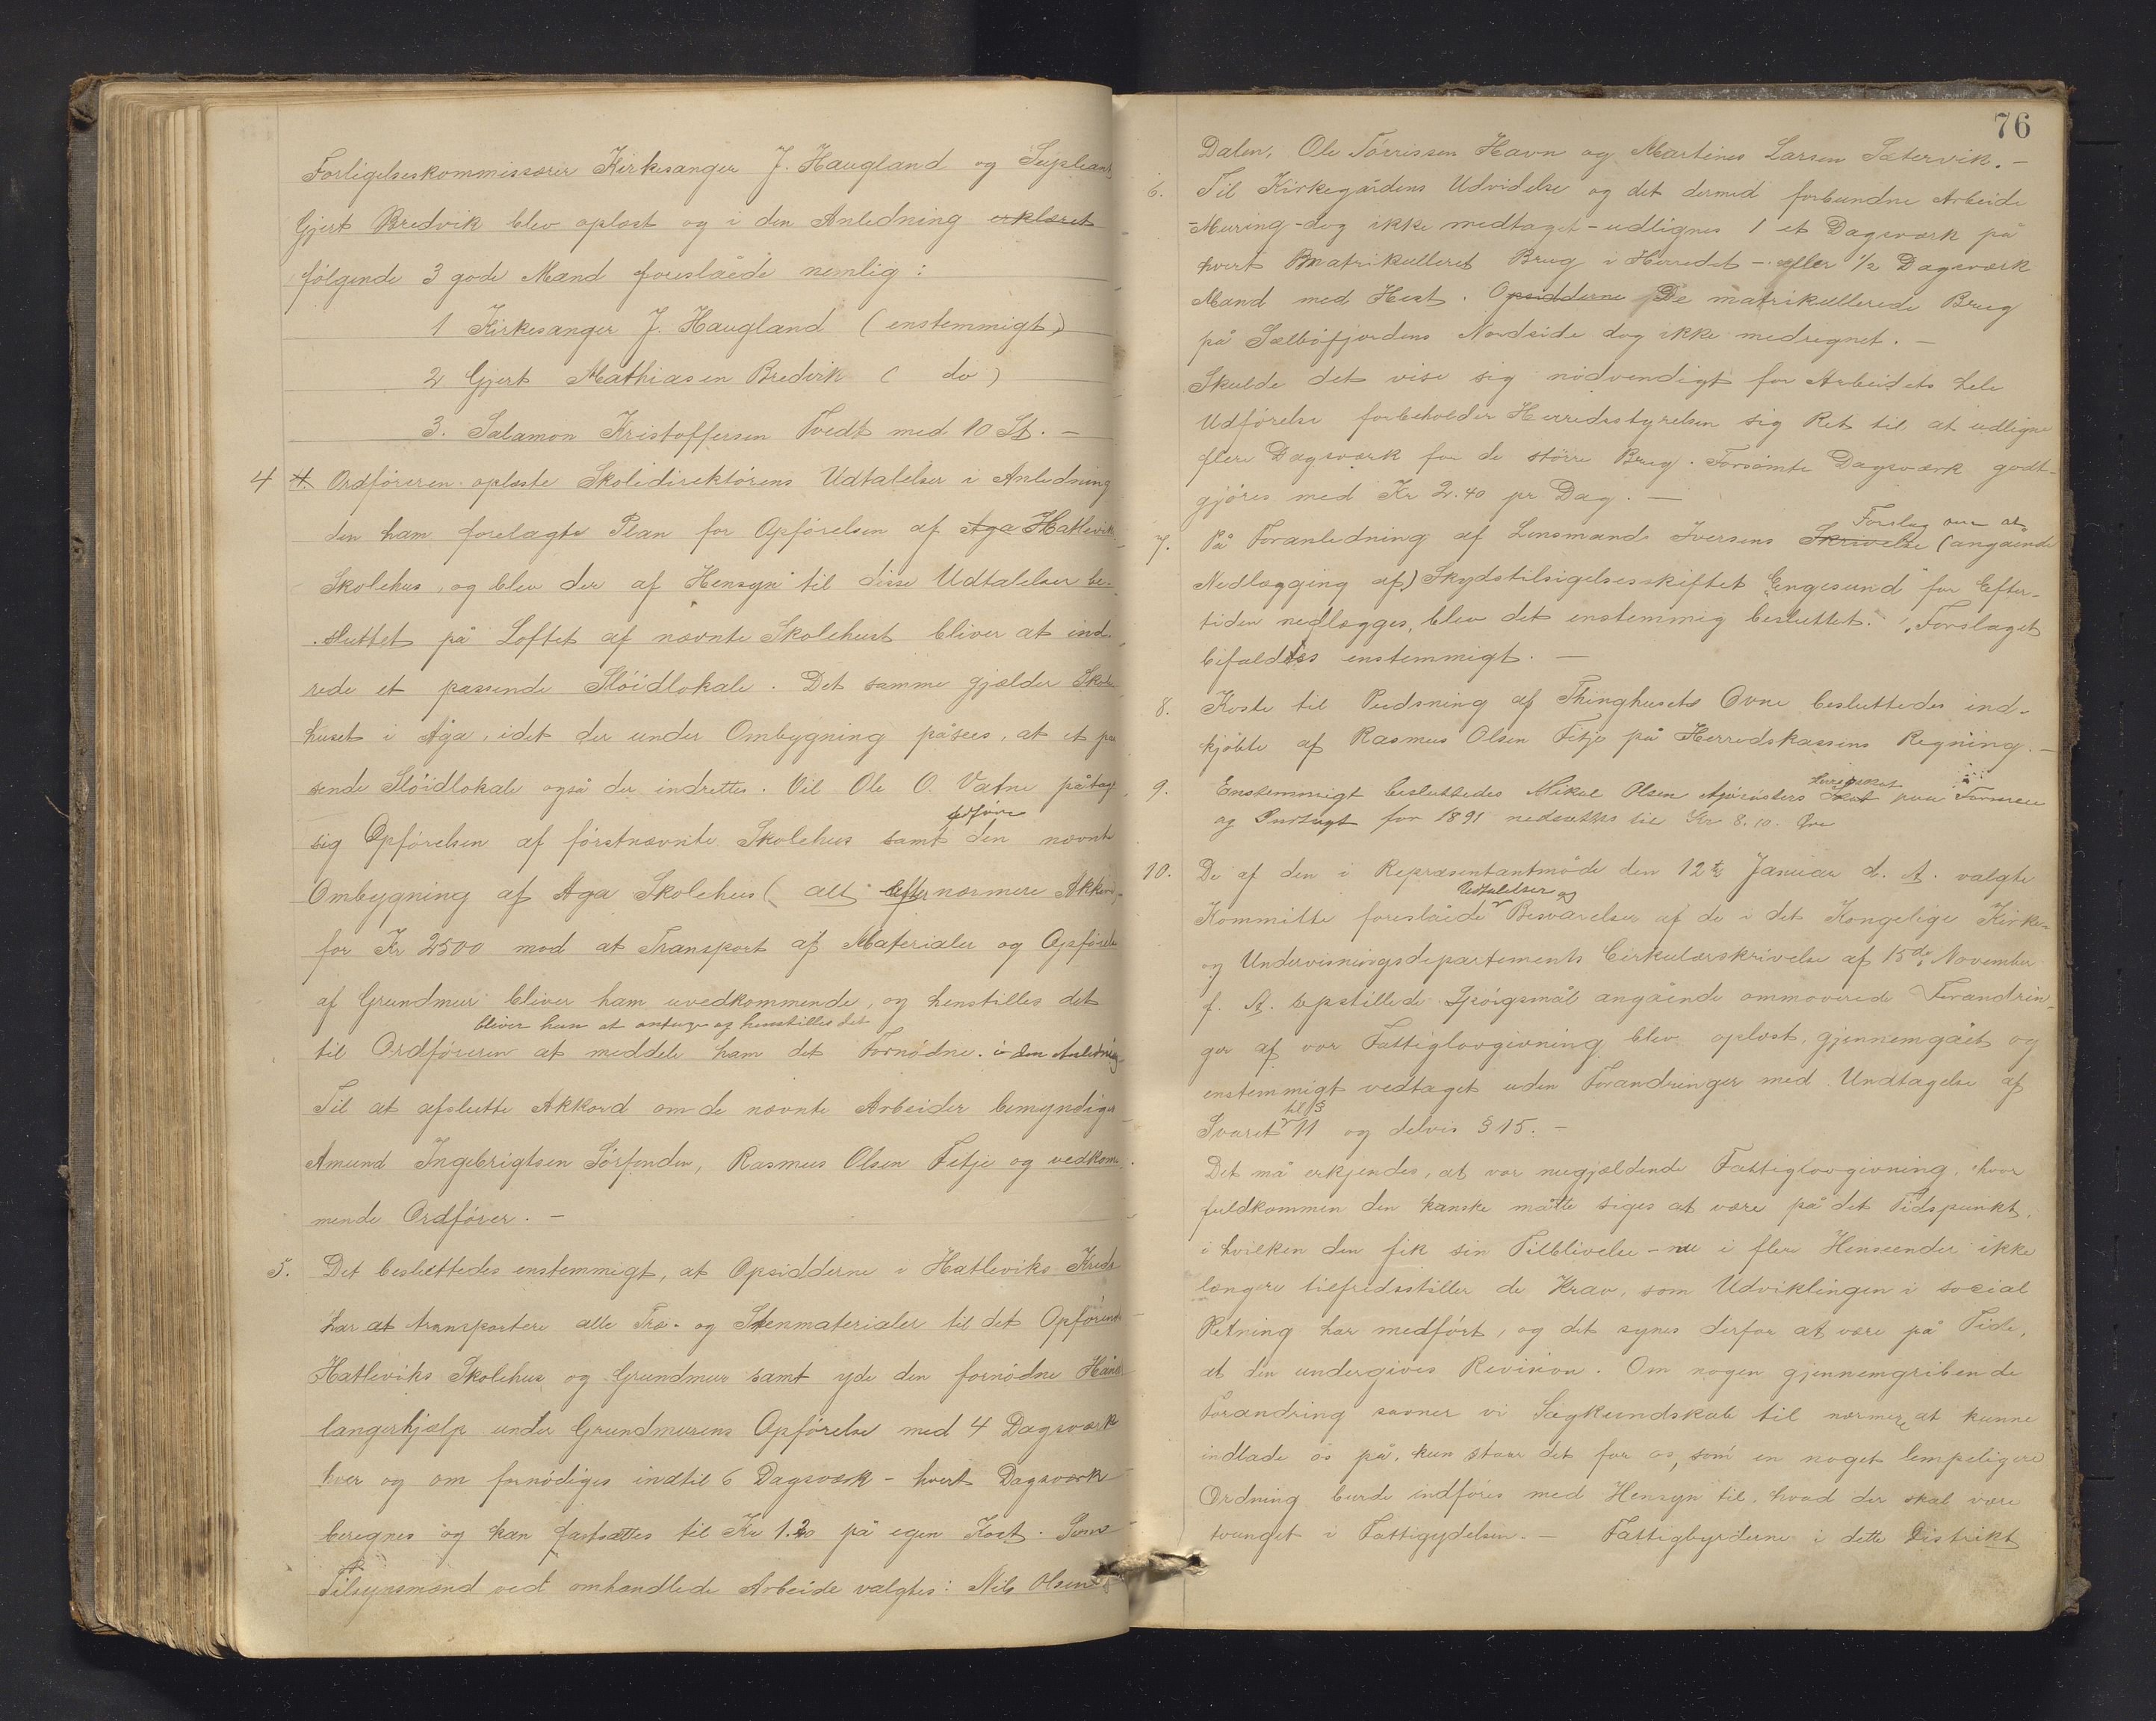 Forligelseskommissærer Kirkesanger J. Haugland og Supleant
Gjert Bredvik blev oplæst og i den Anledning erklæret
følgende 3 gode Mænd foreslåede nemlig:
1 Kirkesanger J. Haugland (enstemmigt)
2 Gjert Mathiasen Bredvik ( do )
3. Salamon Kristoffersen Tvedt med 10 St. -
4 4. Ordføreren oplæste Skoledirektørens Udtalelser i Anledning
den ham forelagte Plan for Opførelsen af Aga Hatlevik
Skolehus, og blev der af Hensyn til disse Udtalelser be-
sluttet på Loftet af nævnte Skolehust bliver at ind-
rede et passende Slöidlokale. Det samme gjælder Skole
huset i Åga, idet der under Ombygning påsees, at et pas
sende Slöidlokale også der indrettes. Vil Ole O. Vatne påtage
udføre
sig Opførelsen af førstnævnte Skolehus samt den nævnte
Ombygning af Aga Skolehus (alt efter nærmere Akkord
for Kr 2500 mod at Transport af Materialer og Opførelse
af Grundmur bliver ham uvedkommende, og henstilles det
bliver han at antage og henstilles det
til Ordføreren at meddele ham det Fornødne. i den Anledning
Til at afslutte Akkord om de nævnte Arbeider bemyndiges
Amund Ingebrigtsen Sörfonden, Rasmus Olsen Fitje og vedkom-
mende Ordfører. -
5. Det besluttedes enstemmigt, at Opsidderne i Hatleviks Kreds
har at transportere alle Træ- og Stenmaterialer til det Opførende
Hatleviks Skolehus og Grundmur samt yde den fornödne Hånd
langerhjælp under Grundmurens Opførelse med 4 Dagsværk
hver og om fornødiges indtil 6 Dagsværk - hvert Dagsværk
beregnes og kan fastsættes til Kr 1.20 på egen Kost. Som
Tilsynsmænd ved omhandlede Arbeide valgtes: Nils Olsen
76
Dalen, Ole Tórrissen Havn og Martines Larsen Sætervik. -
6. Til Kirkegårdens Udvidelse og det dermed forbundne Arbeide
-Muring- dog ikke medtaget - udlignes 1 et Dagsværk på
hvert Bmatrikulleret Brug i Herredet - eller 1/2 Dagsværk
Mand med Hest. Opsidderne De matrikullerede Brug
på Sælbófjordens Nordside dog ikke medregnet. -
Skulde det vise sig nödvendigt for Arbeidets hele
Udførelse forbeholder Herredsstyrelsen sig Ret til at udligne
flere Dagsværk for de större Brug. Forsömte Dagsværk godt-
gjøres med Kr 2.40 pr Dag. -
Forslag om at
7. På Foranledning af Lensmands Iversens Skrivelse (angående
Nedlægging af) Skydstilsigelsesskiftet "Engesund" for Efter-
tiden nedlægges, blev det enstemmig besluttet: "Forslaget
bifaldtes enstemmigt. -
8. Koste til Pudsning af Thinghusets Ovne besluttedes ind-
kjøbte af Rasmus Olsen Fitje på Herredskassens Regning. -
9. Enstemmigt besluttedes Mikal Olsen Skat paa Formue
og Indtægt for 1891 nedsættes til Kr 8.10. Øre
10. De af den i Repræsentantmöde den 12te Januar d. A. valgte
Udtalelser og
Kommitte foreslåede Besvarelser af de i det Kongelige Kirke-
og Undervisningsdepartements Cirkulærskrivelse af 15de November
f. A. opstillede Spörgsmål angående ommoverede Forandrin-
ger af vor Fattiglovgivning blev oplæst, gjennemgået og
enstemmigt vedtaget uden Forandringer med Undtagelse af
til §
Svaret 11 og delvis § 15. -
Det må erkjendes, at vor nugjældende Fattiglovgivning, hvor
fuldkommen den kanske måtte siges at være på det Tidspunkt,
i hvilken den fik sin Tilblivelse - nu i flere Henseender ikke
længere tilfredsstiller de Krav, som Udviklingen i social
Retning har medført, og det synes derfor at være på Tide,
at den undergives Revision. Om nogen gjennemgribende
Forandring savner vi Sagkundskab til nærmere at kunne
indlade os på, kun står det for os, som en noget lempeligere
Ordning burde indføres med Hensyn til, hvad der skal være
tvunget i Fattigydelsen. - Fattigbyrderne i dette Distrikt